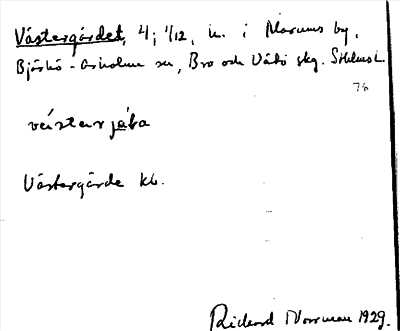 Västergärdet, 4; 1/12, h. i Marums by,
Björkö-Arholma sn, Bro och Vätö skg. Sthlms l.
76
Västergärde kb.
Rickard Norrman 1929.